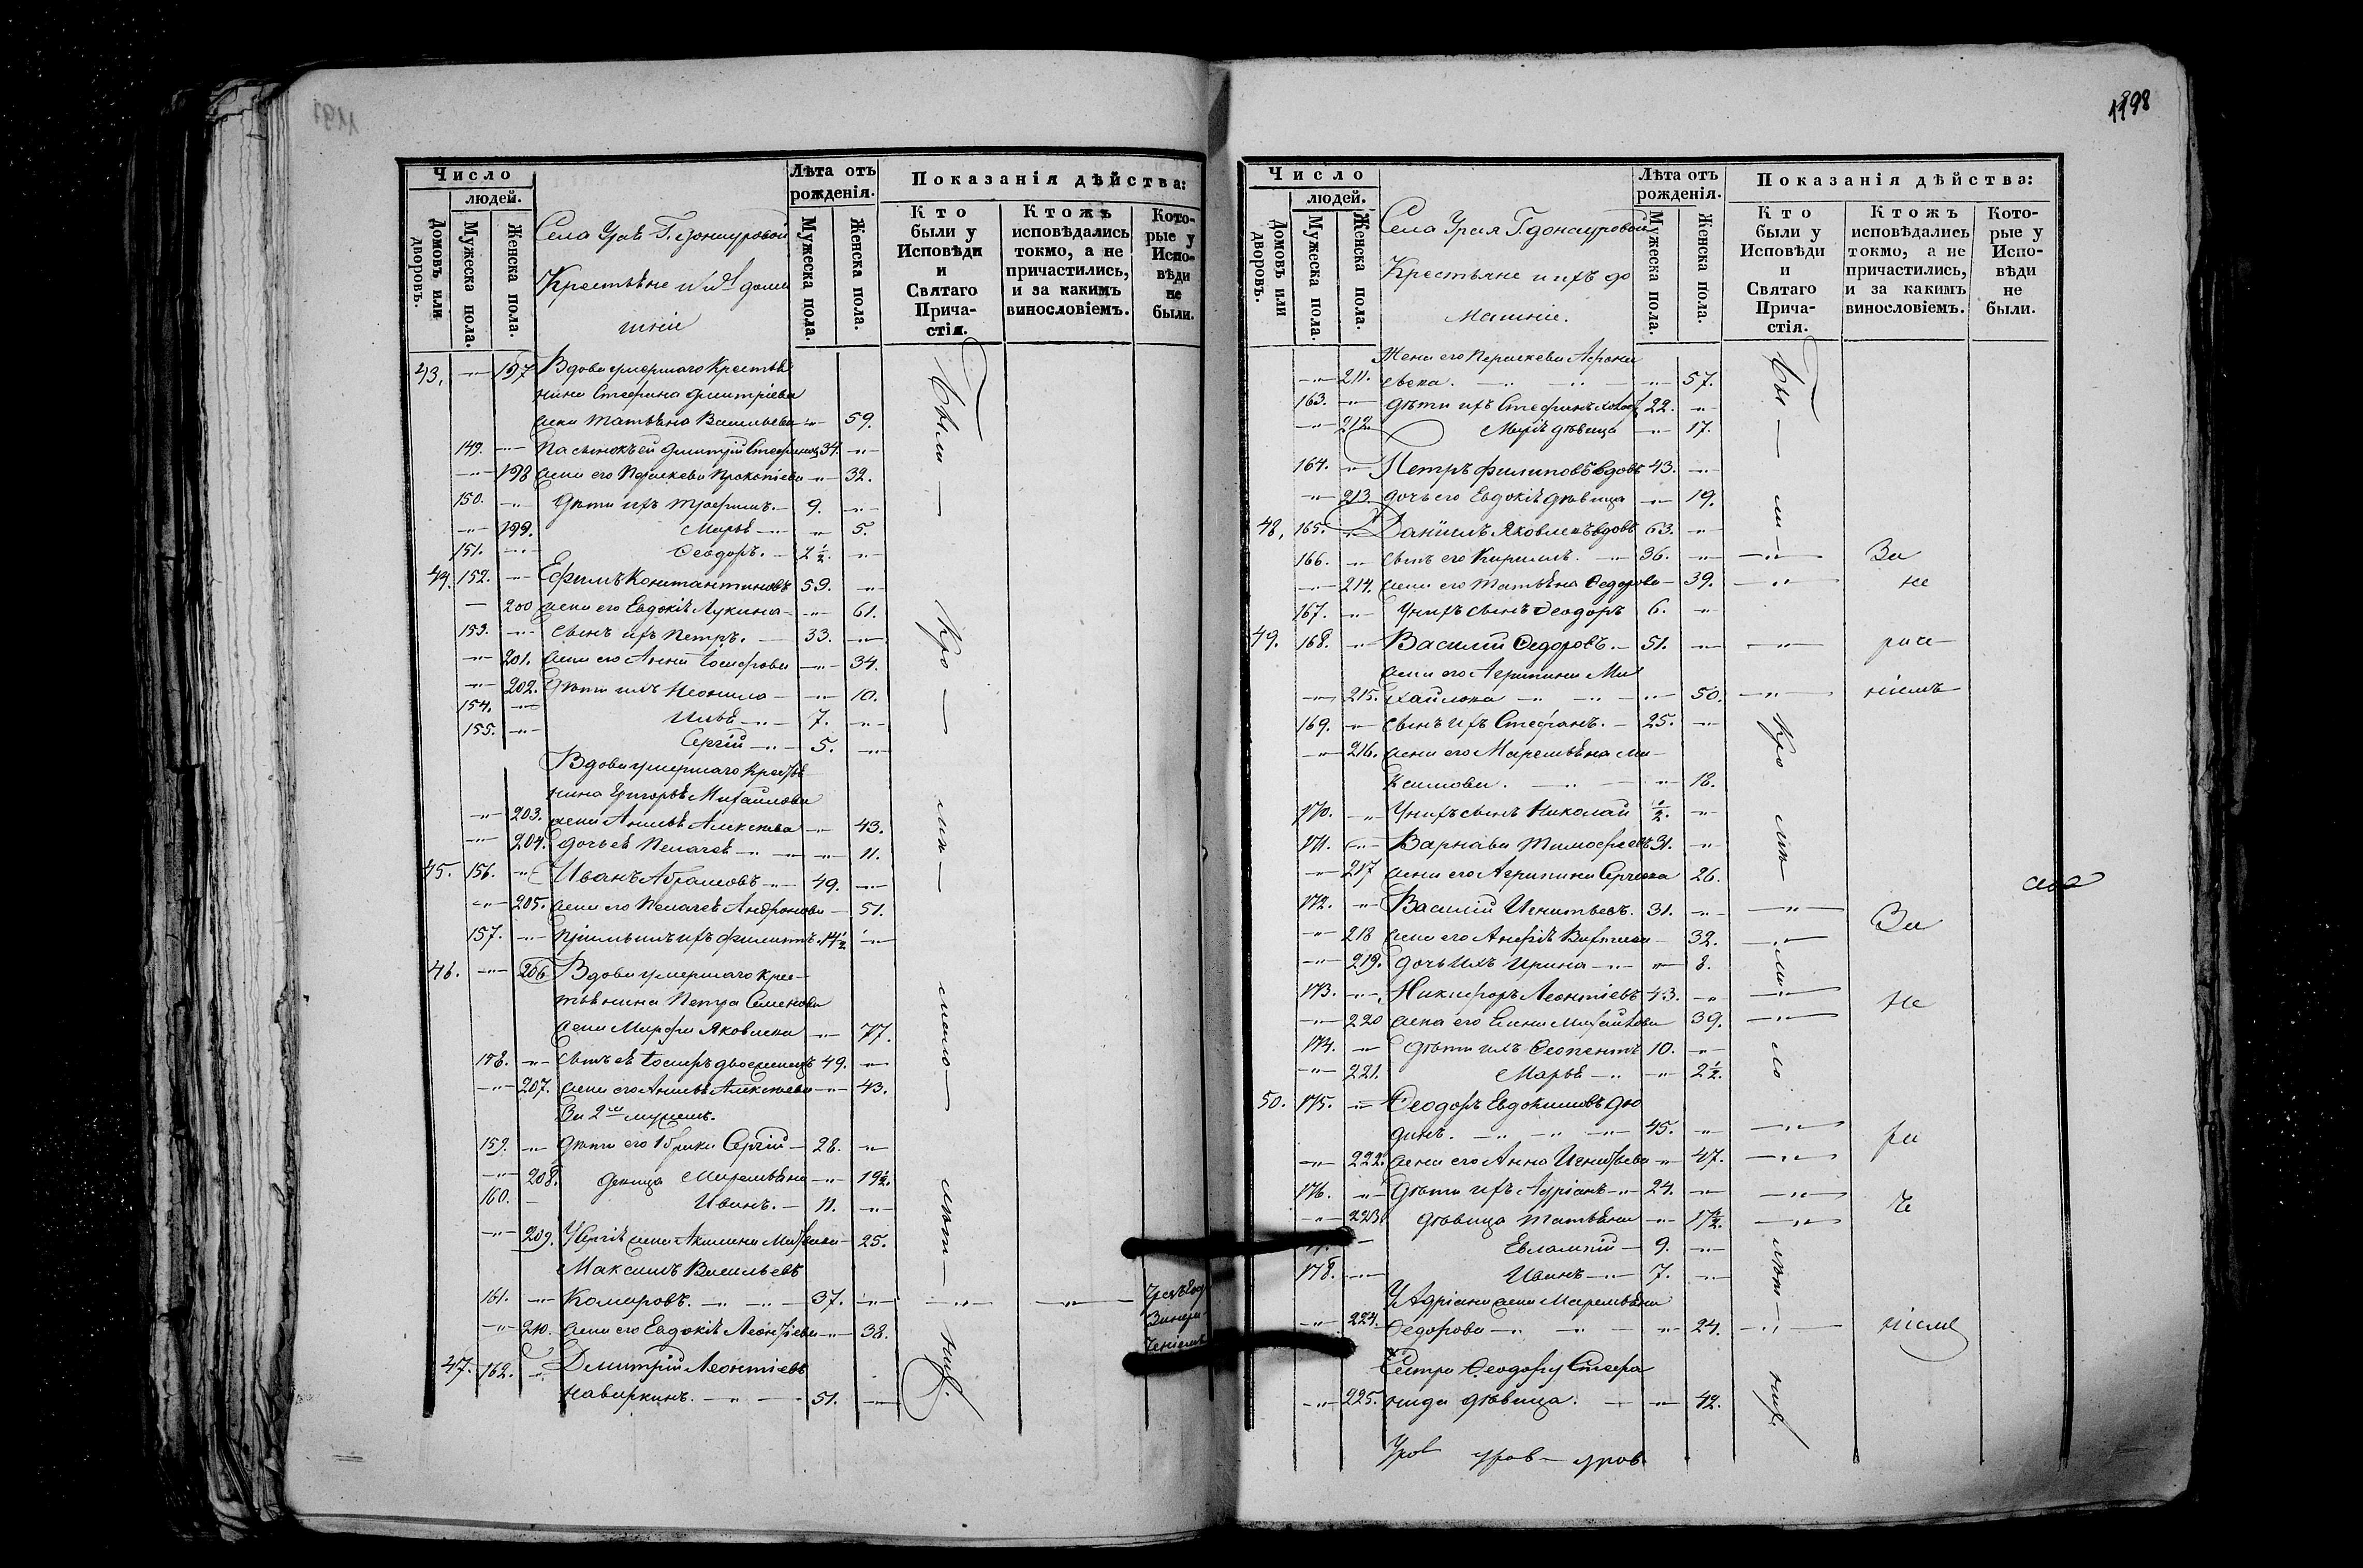 1198
Число
людей.
Домовъ или дворовъ.
Мужеска пола.
Женска пола.
Села
Крестьяне
Лѣта отъ рожденія.
Мужеска пола.
Женска пола.
Показанія дѣйства:
Кто были у Исповѣди и Святаго Прича-
стія.
Ктожъ исповѣдались токмо, а не причастились, и за какимъ винословіемъ.
Кото-
рые у Испо-
вѣди не были.
43. 197 Вдова умершаго крестья
нина Стефана Димитріева
жена Татьяна Васильева 59.
149. Пасынокъ ей Димитрій Стефановъ 34.
198 жена его Параскева Прокопіева 32.
150. Дѣти ихъ Трофимъ. 9.
199. Марья 5.
151. Феодоръ. 2½.
44. 152. Ефимъ Константиновъ 59.
200 жена его Евдокія Лукина 61.
153. сынъ ихъ Петръ. 33.
201. жена его Анна Іосифова 34.
202. Дѣти ихъ Неонила 10.
154. Илья 7.
155. Сергій 5.
Вдова умершаго крестья
нина Григорья Михайлова
203. жена Анисья Алексѣева 43.
204. дочь ея Пелагея 11.
45. 156. Иванъ Абрамовъ 49.
205. жена его Пелагея Андронова 51.
157. Пріимышъ ихъ Филиппъ. 14½
46. 206 Вдова умершаго крес-
тьянина Петра Семенова
жена Марфа Яковлева 77.
158. сынъ ея Іосифъ двоеженецъ 49.
207. жена его Анисья Алексѣева 43.
За 2мъ мужемъ.
159. Дѣти его 1 брака Сергій 28.
208. девица Маремьяна 19½.
160. Иванъ. 11.
209. У Сергія жена Акилина Матвеева 25.
Максимъ Васильевъ
161. Комаровъ. 37.
210. жена его Евдокія Леонтіева 38.
47. 162. Димитрій Леонтіевъ
Наваркинъ. 51.
Были Кро мѣ мало лѣт нихъ.
Число
людей.
Домовъ или дворовъ.
Мужеска пола.
Женска пола.
Села
Крестьяне и ихъ до
машніе.
Лѣта отъ рожденія.
Мужеска пола.
Женска пола.
Показанія дѣйства:
Кто были у Исповѣди и Святаго Прича-
стія.
Ктожъ исповѣдались токмо, а не причастились, и за какимъ винословіемъ.
Кото-
рые у Испо-
вѣди не были.
Жена его Параскева Афона
211. сьева. 57.
163. Дѣти ихъ Стефанъ 22.
212. Марія дѣвица 17.
164. Петръ Филиповъ вдовъ 43.
213. дочь его Евдокія дѣвица 19.
48. 165. Даніилъ Яковлевъ вдовъ 63.
166. сынъ его Кирилъ. 36.
214. жена его Татьяна Федорова 39.
167. У нихъ сынъ Феодоръ 6.
49. 168. Василій Федоровъ. 51.
жена его Агрипина Ми
215. хайлова 50.
169. сынъ ихъ Стефанъ. 25.
216. жена его Маремьяна Ма-
ксимова. 18.
170. У нихъ сынъ Николай ½.
171. Варнава Тимофеевъ 31.
217 жена его Агрипина Сергеева 26.
172. Василій Игнатьевъ. 31.
218 жена его 32.
219. дочь ихъ Ирина 8.
173. Никифоръ Леонтіевъ 43.
220 жена его Елена Михайлова 39.
174. Дѣти ихъ Феопентъ 10.
221. Марья 2½.
50. 175. Феодоръ Евдокимовъ Дю
динъ. 45.
222. жена его Анна Игнатьева 47.
176. Дѣти ихъ Адріанъ 24.
223. дѣвица Татьяна 17½.
Евлампій 9.
178. Иванъ 7.
У Адріана жена Маремьяна
224. Федорова 24.
Сестра Феодору Стефа
225. нида дѣвица. 42.
Бы ли Кро мѣ ма ло лѣт нихъ.
За не раче ніемъ
За Не ра че ніемъ